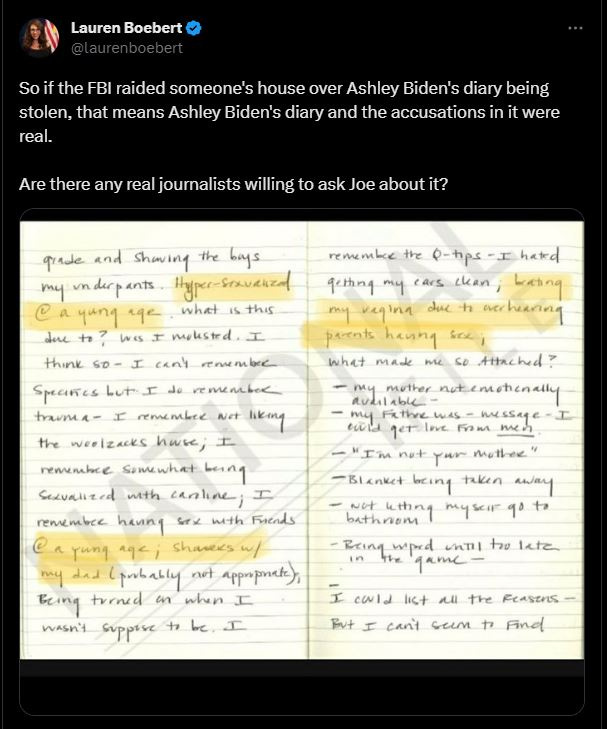 Lauren Boebert
@laurenboebert
So if the FBI raided someone's house over Ashley Biden's diary being
stolen, that means Ashley Biden's diary and the accusations in it were
real.
Are there any real journalists willing to ask Joe about it?
grade and showing the boys
my underpants. Hyper-sexualized
@ a young age. what is this
due to? was I molested. I
think so - I can't remember
specifics but I do remember
trauma - I remember not liking
the woolzacks house; I
remember somewhat being
sexualized with caroline; I
remember having sex with friends
@ a young age; showers w/
my dad (probably not appropriate);
Being turned on when I
wasn't suppose to be. I
remember the Q-tips - I hated
getting my ears clean;
my vagina due to overhearing
parents having sex;
what made me so Attached?
- my mother not emotionally
available -
- my Father was - message - I
could get love from men
- "I'm not your mother"
- Blanket being taken away
- not letting myself go to
bathroom
- Being until too late
in the game -
-
I could list all the reasons -
But I can't seem to Find
NATIONAL FILE